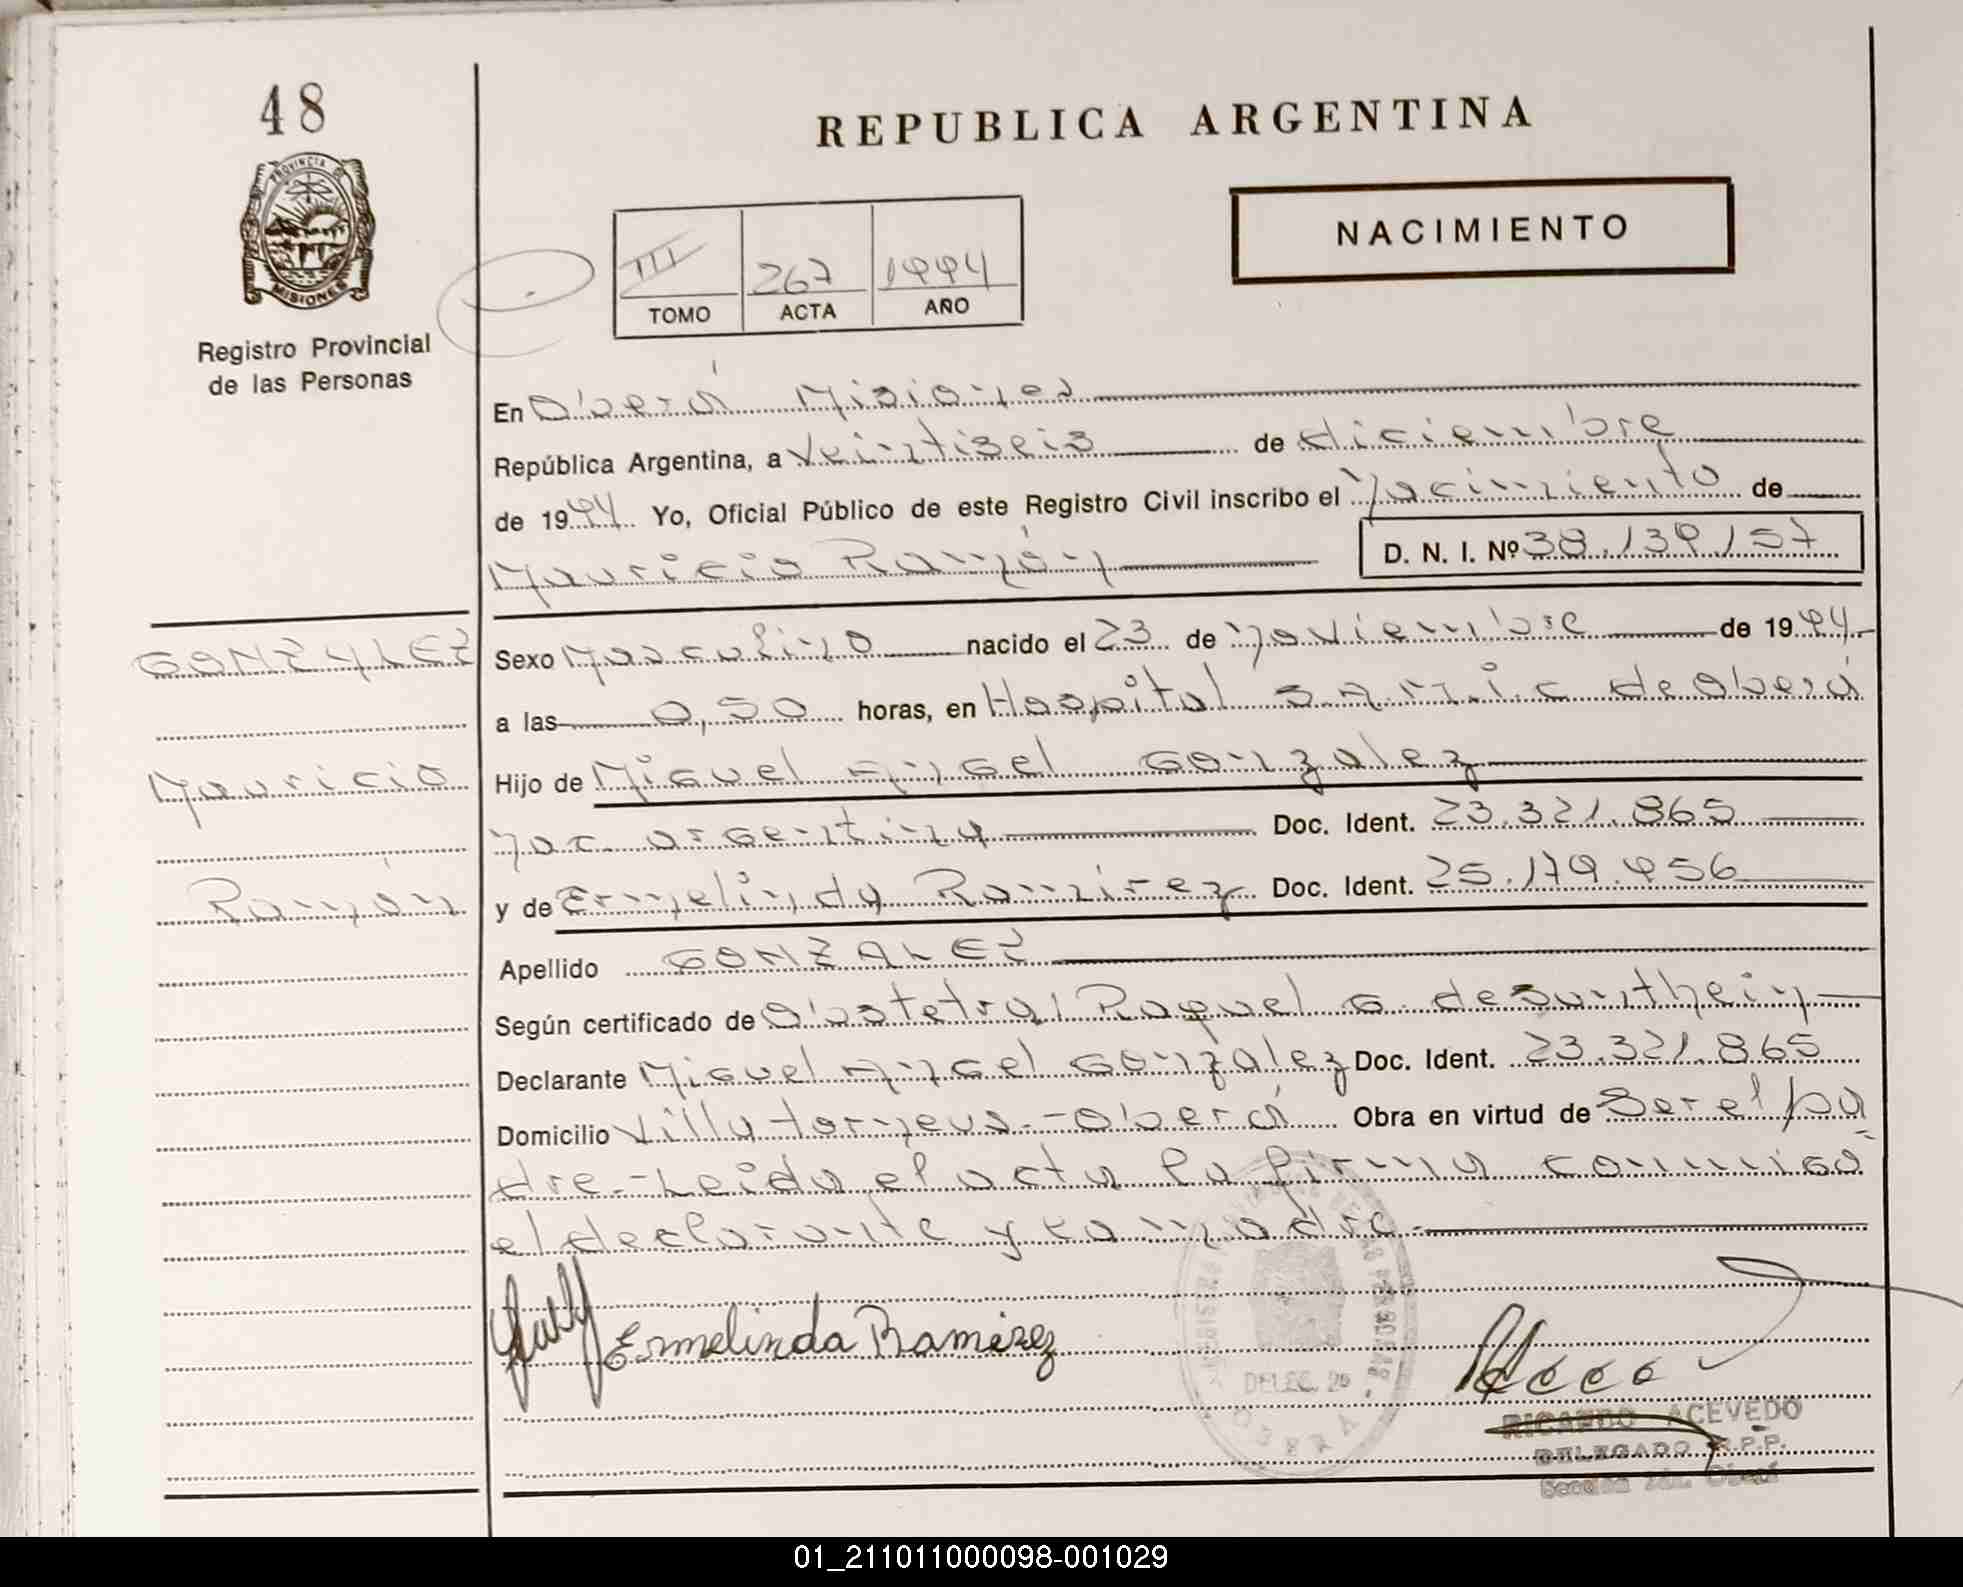 48
REPUBLICA ARGENTINA
PROVINCIA DE
MISIONES
NACIMIENTO
III 267 1994
TOMO ACTA AÑO
Registro Provincial
de las Personas
En Oberá Misiones
República Argentina, a Veintiseis de diciembre
de 1994. Yo, Oficial Público de este Registro Civil inscribo el Nacimiento de
Mauricio Ramón D. N. I. Nº 38.139.157
GONZALEZ
Mauricio
Ramón
Sexo Masculino nacido el 23 de Noviembre de 1994.-
a las 0,50 horas, en Hospital SAMIC de Oberá
Hijo de Miguel Angel Gonzalez
Nac. argentina Doc. Ident. 23.321.865
y de Ermelinda Ramirez Doc. Ident. 25.179.956
Apellido GONZALEZ
Según certificado de Obstetra Raquel G. de
Declarante Miguel Angel Gonzalez Doc. Ident. 23.321.865
Domicilio Villa torneus - Oberá Obra en virtud de Ser el pa
dre.- Leida el acta la firma conmigo
el declarante y la madre.-
Ermelinda Ramirez
DELEG. 2a
OBERA
RICARDO ACEVEDO
DELEGADO R.P.P.
Sección 2da. Oberá
01_211011000098-001029